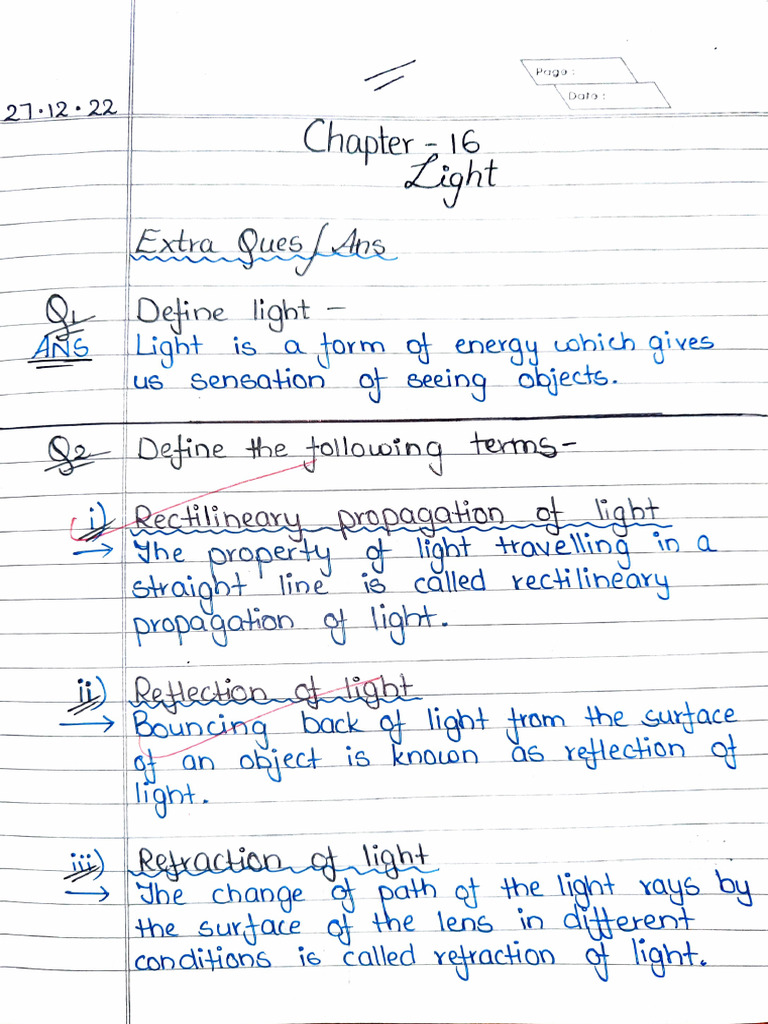 Page :
Date :
27.12.22
Chapter - 16
Light
Extra Ques/Ans
Q1 Define light -
ANS Light is a form of energy which gives
us sensation of seeing objects.
Q2 Define the following terms-
i) Rectilineary propagation of light
→ The property of light travelling in a
straight line is called rectilineary
propagation of light.
ii) Reflection of light
→ Bouncing back of light from the surface
of an object is known as reflection of
light.
iii) Refraction of light
→ The change of path of the light rays by
the surface of the lens in different
conditions is called refraction of light.